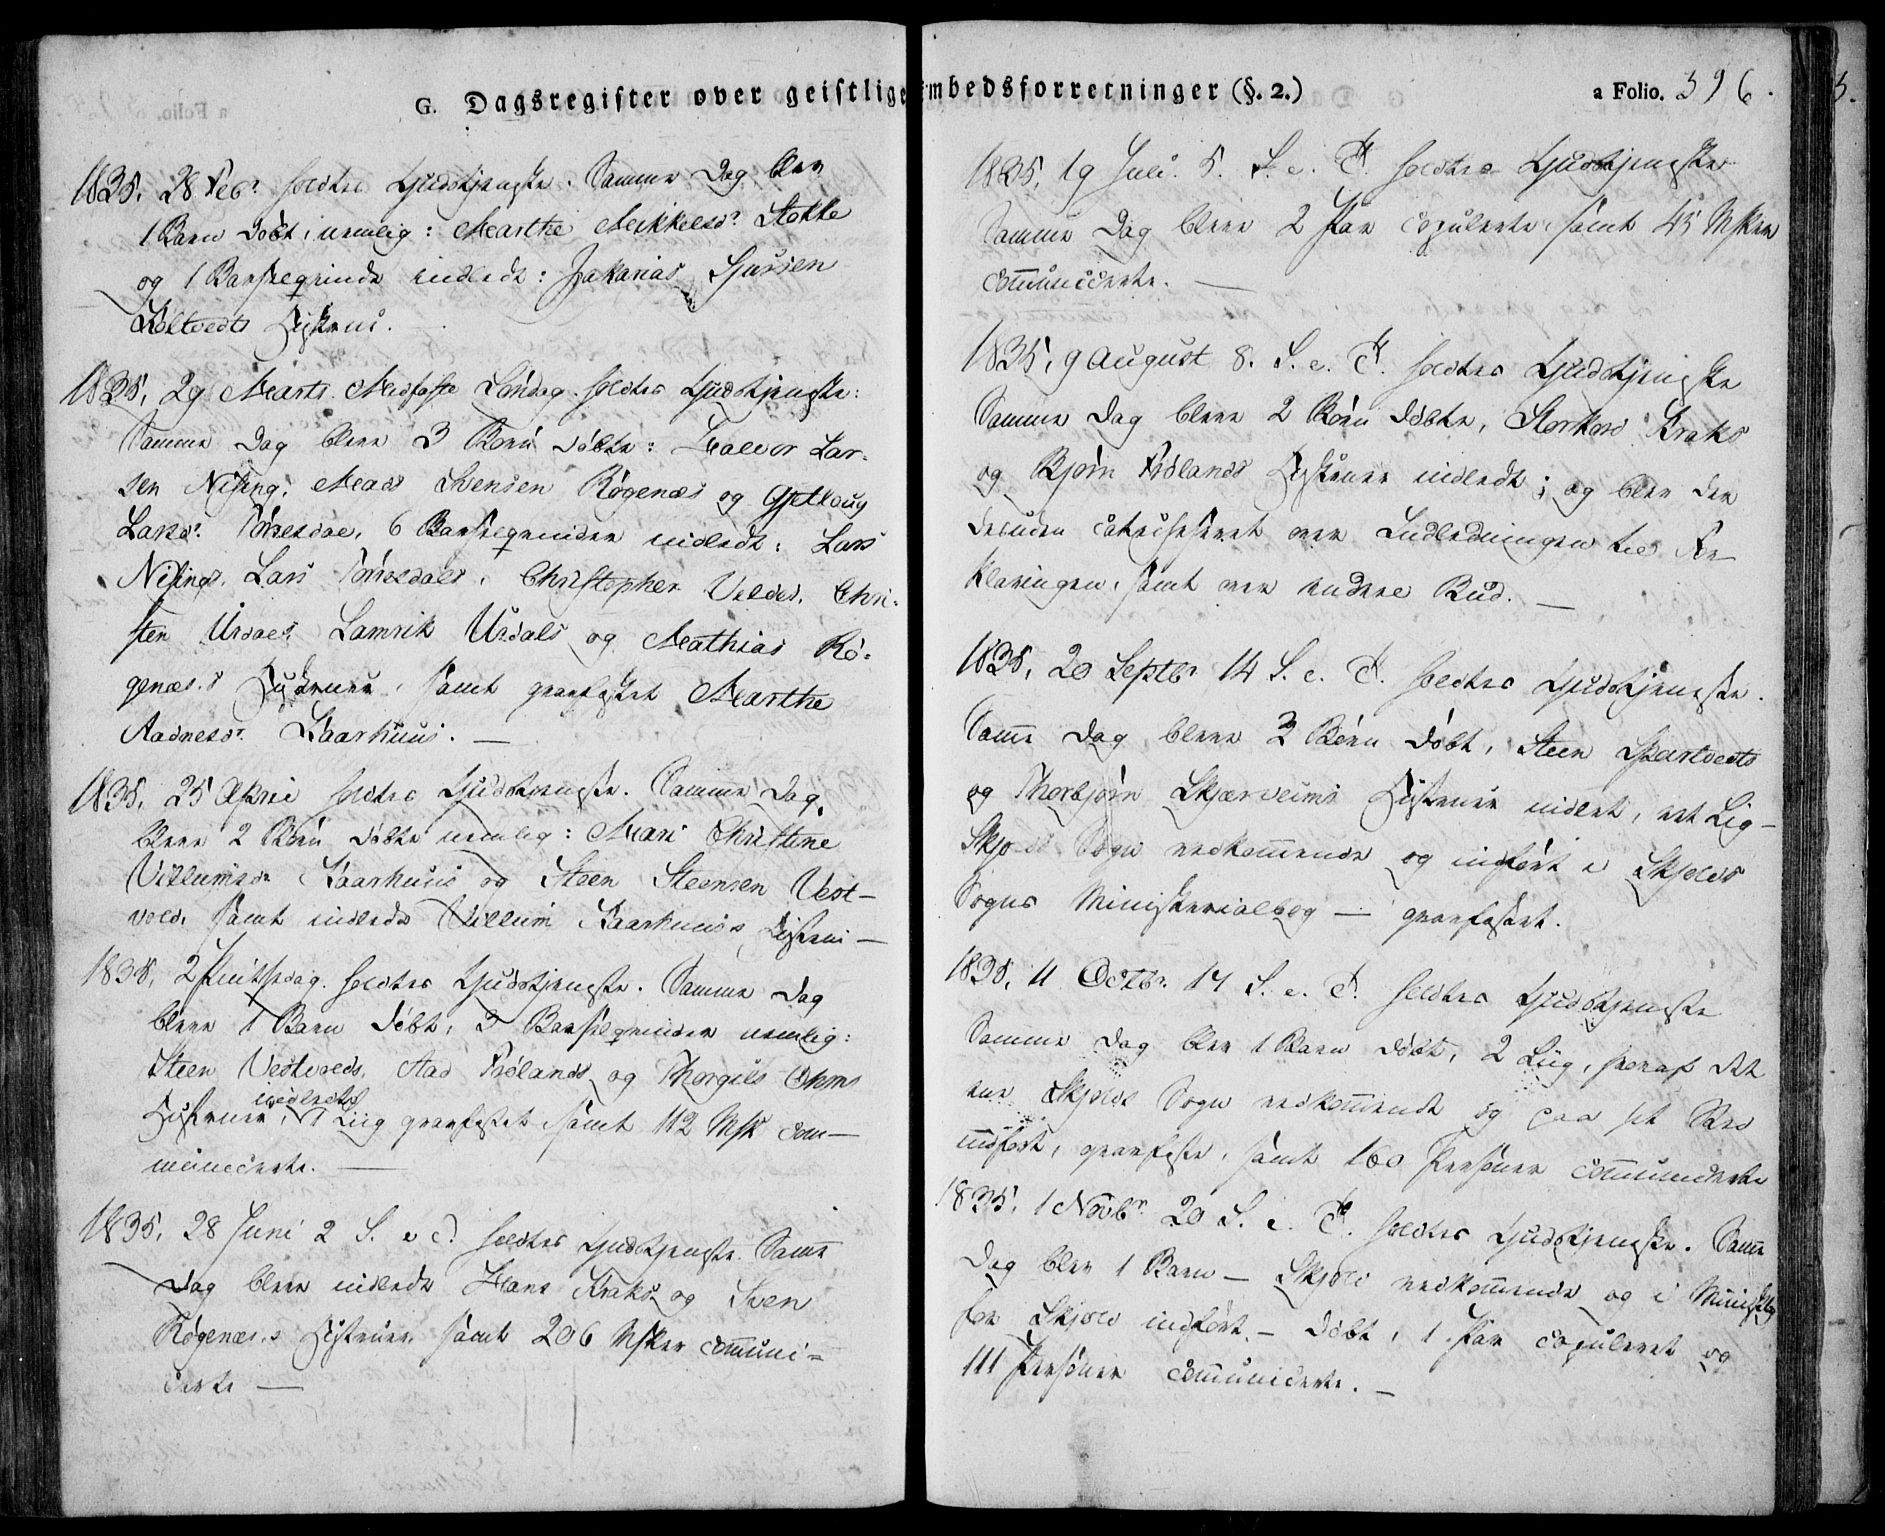 G. Dagsregister over geistlige Embedsforretninger (§. 2.)
a Folio. 396.
1835, 28 Febr. holdtes Gudstjeneste. Samme Dag blev
1 Barn døbt, nemlig: Marthe Mikkelsdr. Stakke
og 1 Barselqvinde indledt: Zakarias Sjursen
Holtvedts Hustrue.
1835, 29 Marts Midfaste Søndag holdtes Gudstjeneste:
Samme Dag bleve 3 Børn døbte: Halvor Lar-
sen Nising, Mads Svensen Røgenæs og Gjetloug
Larsdr. Tørresdal, 6 Barselqvinder indledt: Lars
Nisings, Lars Tørresdals, Christopher Veldes, Chri-
sten Urdals Lamrik Urdals og Mathias Rø-
genæs.s Hustruer, samt graafæstet Marthe
Aadnesdr. Kaarhuus. —
1835, 25 April holdtes Gudstjeneste. Samme Dag
bleve 2 Børn døbte nemlig: Mari Christine
Villumsdr Kaarhuus og Steen Steensen Vest-
vold, samt indledt Villum Kaarhuus's Hustrue —
1835, 2 Pintsedag holdtes Gudstjeneste. Samme Dag
bleve 1 Barn døbt, 3 Barselqvinder nemlig:
Steen Vestvolds, Aad Frølands og Thorgils Ohms
indledte
Hustruer, 1 Liig graafæstet samt 112 Msk com-
municerte. —
1835, 28 Juni 2 S. e T. holdtes Gudstjeneste. Samme
Dag bleve indledt Hans Kraks og Sven
Røgenæs.s Hustruer samt 206 Msker communi-
certe —
1835, 19 Juli 5. S. e. T. holdtes Gudstjeneste
Samme Dag bleve 2 Par copulerte, samt 45 Msker
communicerte. —
1835, 9 August 8. S. e. T. holdtes Gudstjeneste
Samme Dag bleve 2 Børn døbte, Kraks
og Bjørn Frølands Hustruer indledt; og blev des
desuden catechiseret over Indledningen til For-
klaringen, samt over andre Bud. —
1835, 20 Septbr 14 S. e. T. holdtes Gudstjeneste.
Samme Dag bleve 2 Børn døbt, Steen Skartvedts
og Thorbjørn Skjærveims Hustruer indledt, et Lig —
Skjolds Sogn vedkommende og indført i Skjolds
Sogns Ministerialbog — graafæstet.
1835, 11 Octbr. 17 S. e. T. holdtes Gudstjeneste
Samme Dag blev 1 Barn døbt, 2 Liig, hvoraf det
ene Skjolds Sogn vedkommende og paa sit Sted
indført, graafæstet, samt 160 Personer communicerte
1835, 1 Novbr. 20 S. e. T. holdtes Gudstjeneste. Samme
Dag blev 1 Barn — Skjold vedkommende og i Ministbg
for Skjold indført — døbt, 1 Par copuleret og
111 Personer communicerte. —